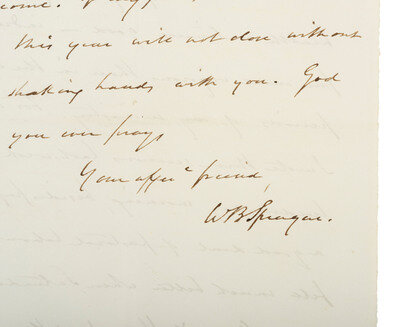 come.
this year will not close without
shaking hands with you. God
you ever prays
Your affec friend,
WBSprague.